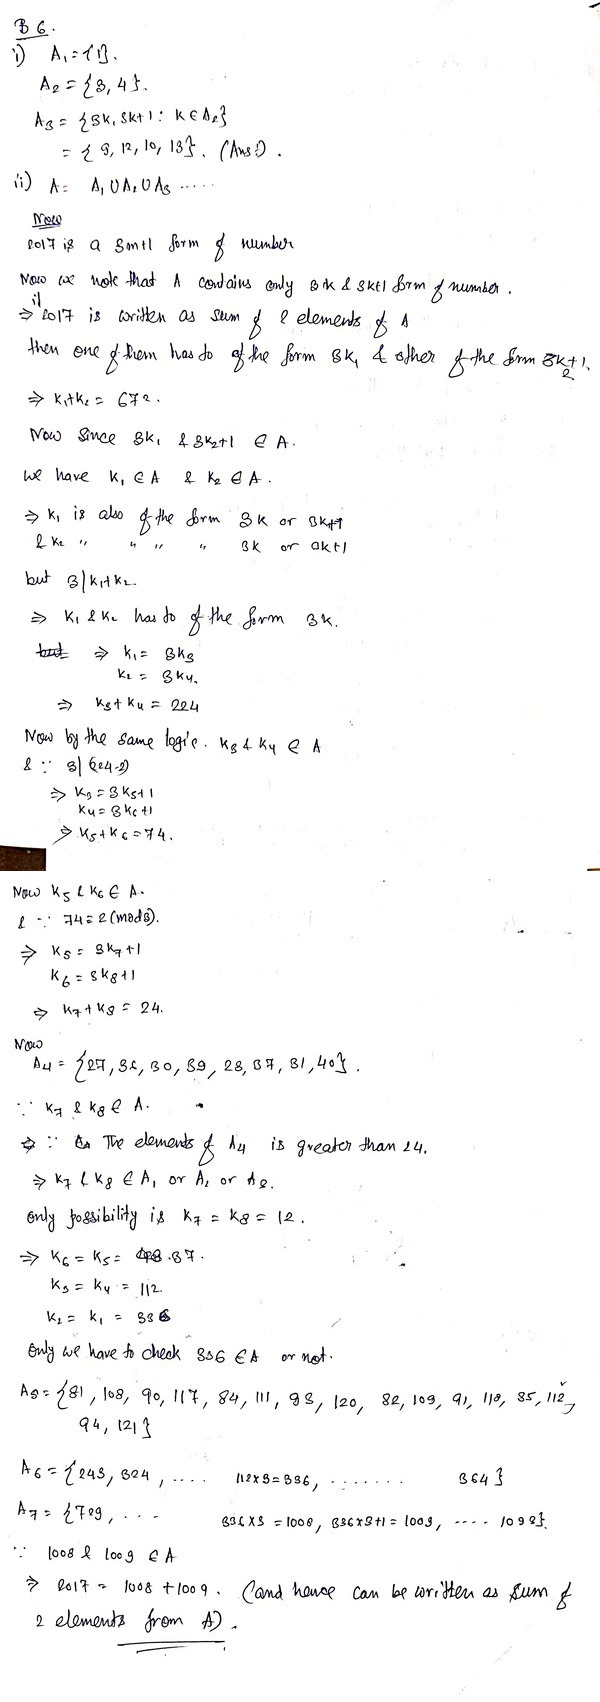 B 6.
i) A₁ = {1}.
A₂ = {3, 4}.
A₃ = {3k, 3k+1 : k ∈ A₂}
= {9, 12, 10, 13}. (Ans:).
ii) A = A₁ ∪ A₂ ∪ A₃ .....
Now
2017 is a 3m+1 form of number
Now we note that A contains only 3k & 3k+1 form of number.
⇒ if 2017 is written as sum of 2 elements of A
then one of them has to of the form 3k₁ & other of the form 3k₂+1.
⇒ k₁+k₂ = 672.
Now since 3k₁ & 3k₂+1 ∈ A.
we have k₁ ∈ A & k₂ ∈ A.
⇒ k₁ is also of the form 3k or 3k+1
& k₂ " " " " 3k or 3k+1
but 3|k₁+k₂
⇒ k₁ & k₂ has to of the form 3k.
but ⇒ k₁ = 3k₃
k₂ = 3k₄.
⇒ k₃+k₄ = 224
Now by the same logic. k₃ & k₄ ∈ A
& ∵ 3|(224-2)
⇒ k₃ = 3k₅+1
k₄ = 3k₆+1
⇒ k₅+k₆ = 74.
Now k₅ & k₆ ∈ A.
& ∵ 74 = 2(mod 3).
⇒ k₅ = 3k₇+1
k₆ = 3k₈+1
⇒ k₇+k₈ = 24.
Now
A₄ = {27, 36, 30, 39, 28, 37, 31, 40}.
∵ k₇ & k₈ ∈ A.
⇒ ∵ The elements of A₄ is greater than 24.
⇒ k₇ & k₈ ∈ A₁ or A₂ or A₃.
Only possibility is k₇ = k₈ = 12.
⇒ k₆ = k₅ = 37.
k₃ = k₄ = 112.
k₂ = k₁ = 336
Only we have to check 336 ∈ A or not.
A₅ = {81, 108, 90, 117, 84, 111, 93, 120, 82, 109, 91, 118, 85, 112,
94, 121}
A₆ = {243, 324, .... 112×3=336, ....... 364}
A₇ = {729, ... 336×3 = 1008, 336×3+1 = 1009, .... 1093}.
∵ 1008 & 1009 ∈ A
⇒ 2017 = 1008 + 1009. (and hence can be written as sum of
2 elements from A).